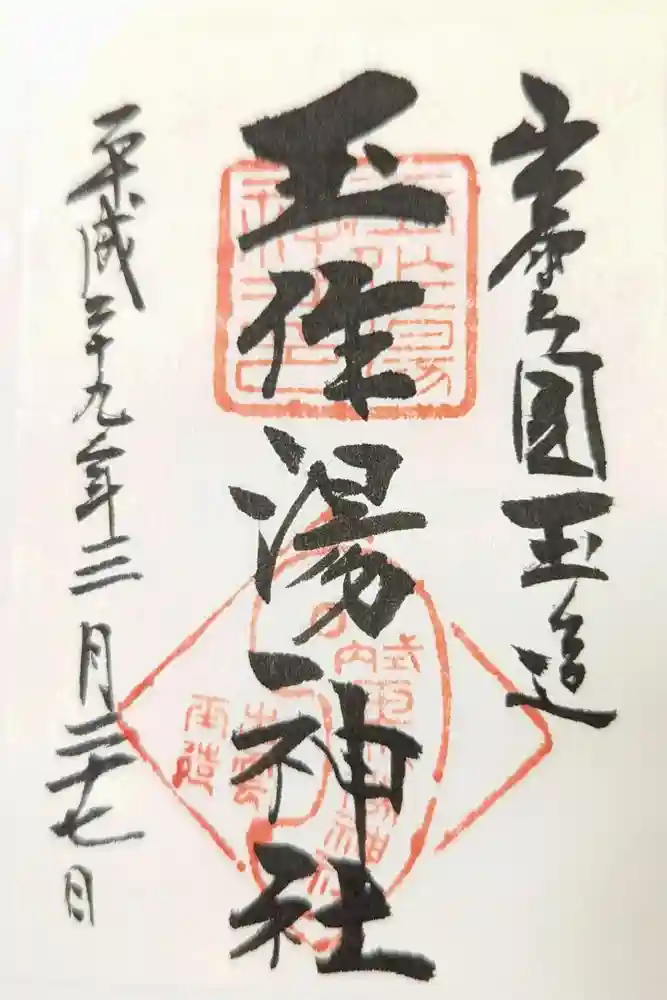 出雲之國玉造
玉作湯神社
平成二十九年三月二十七日
式内
玉作湯神社
出雲
玉造